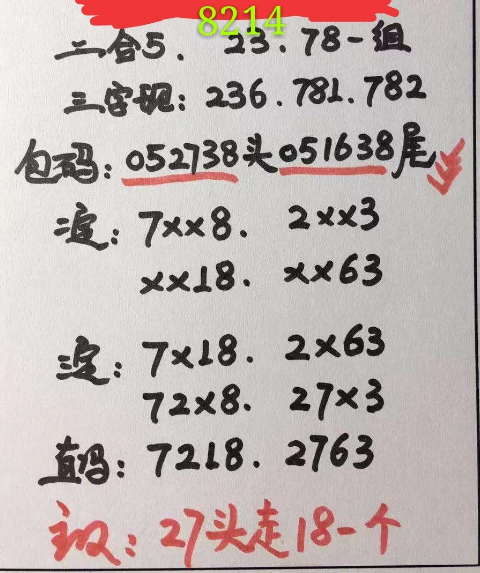 8214
二合5. 23.78-组
三字现: 236.781.782
包码: 052738头051638尾
定: 7××8. 2××3
××18. ××63
定: 7×18. 2×63
72×8. 27×3
直码: 7218. 2763
主攻: 27头走18-个